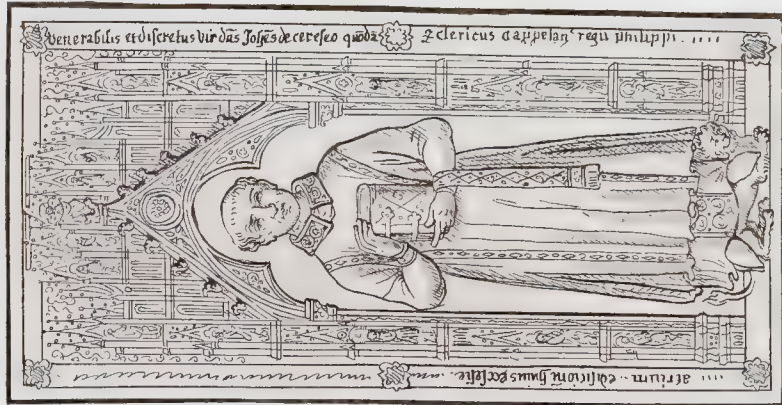 venerabilis et discretus vir dns Johes de cereseo quoda
clericus cappelan regu philippi . ....
.... atrium .. edificioni huius ecclesie